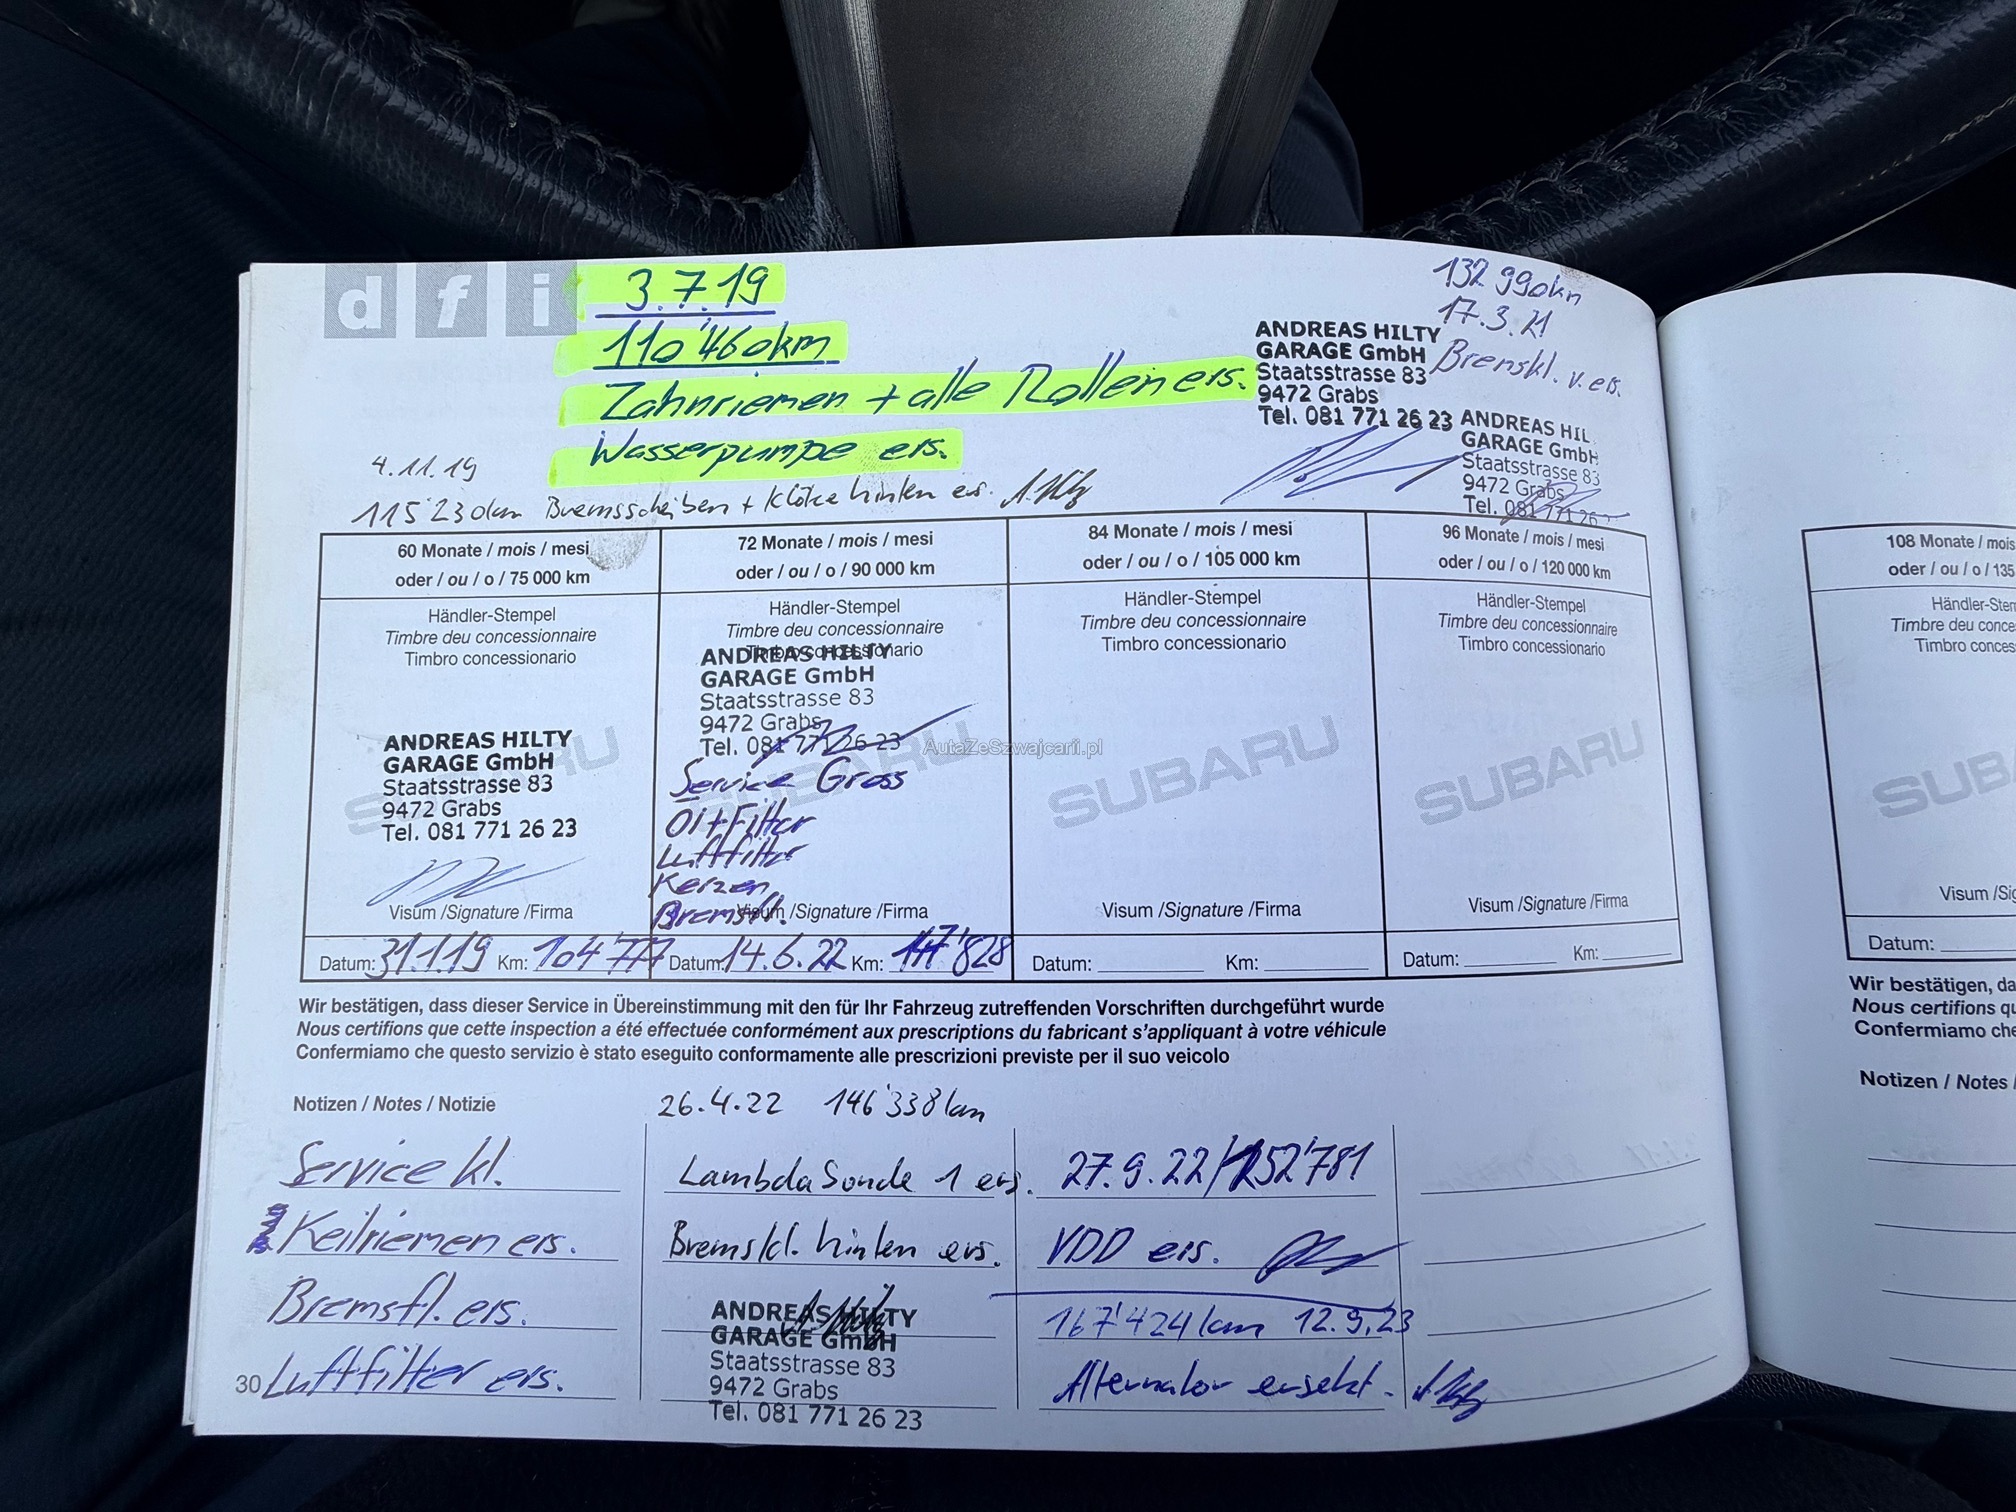 d f i
3.7.19
110'460km
Zahnriemen + alle Rollen ers.
Wasserpumpe ers.
ANDREAS HILTY
GARAGE GmbH
Staatsstrasse 83
9472 Grabs
Tel. 081 771 26 23
132 990km
17.3.21
Bremskl. v. ers.
ANDREAS HIL
GARAGE GmbH
Staatsstrasse 83
9472 Grabs
Tel. 081 771 26
4.11.19
115'230km Bremsscheiben + Klötze hinten ers.
60 Monate / mois / mesi
oder / ou / o / 75 000 km
Händler-Stempel
Timbre deu concessionnaire
Timbro concessionario
ANDREAS HILTY
GARAGE GmbH
Staatsstrasse 83
9472 Grabs
Tel. 081 771 26 23
SUBARU
Visum /Signature /Firma
Datum: 31.1.19 Km: 104'777
72 Monate / mois / mesi
oder / ou / o / 90 000 km
Händler-Stempel
Timbre deu concessionnaire
Timbro concessionario
ANDREAS HILTY
GARAGE GmbH
Staatsstrasse 83
9472 Grabs
Tel. 081 771 26 23
SUBARU
Service Gross
Öl+Filter
Luftfilter
Kerzen
Bremsfl.
Visum /Signature /Firma
Datum: 14.6.22 Km: 147'828
84 Monate / mois / mesi
oder / ou / o / 105 000 km
Händler-Stempel
Timbre deu concessionnaire
Timbro concessionario
AutaZeSzwajcarii.pl
SUBARU
Visum /Signature /Firma
Datum: Km:
96 Monate / mois / mesi
oder / ou / o / 120 000 km
Händler-Stempel
Timbre deu concessionnaire
Timbro concessionario
SUBARU
Visum /Signature /Firma
Datum: Km:
Wir bestätigen, dass dieser Service in Übereinstimmung mit den für Ihr Fahrzeug zutreffenden Vorschriften durchgeführt wurde
Nous certifions que cette inspection a été effectuée conformément aux prescriptions du fabricant s'appliquant à votre véhicule
Confermiamo che questo servizio è stato eseguito conformamente alle prescrizioni previste per il suo veicolo
Notizen / Notes / Notizie
Service kl.
Keilriemen ers.
Bremsfl. ers.
Luftfilter ers.
30
26.4.22 146'338km
Lambda Sonde 1 ers.
Bremskl. hinten ers.
ANDREAS HILTY
GARAGE GmbH
Staatsstrasse 83
9472 Grabs
Tel. 081 771 26 23
27.9.22/152'781
VDD ers.
167'424km 12.9.23
Alternator ersetzt.
108 Monate / mois
oder / ou / o / 135
Händler-Stem
Timbre deu conce
Timbro conces
SUB
Visum /Sig
Datum:
Wir bestätigen, da
Nous certifions qu
Confermiamo che
Notizen / Notes /